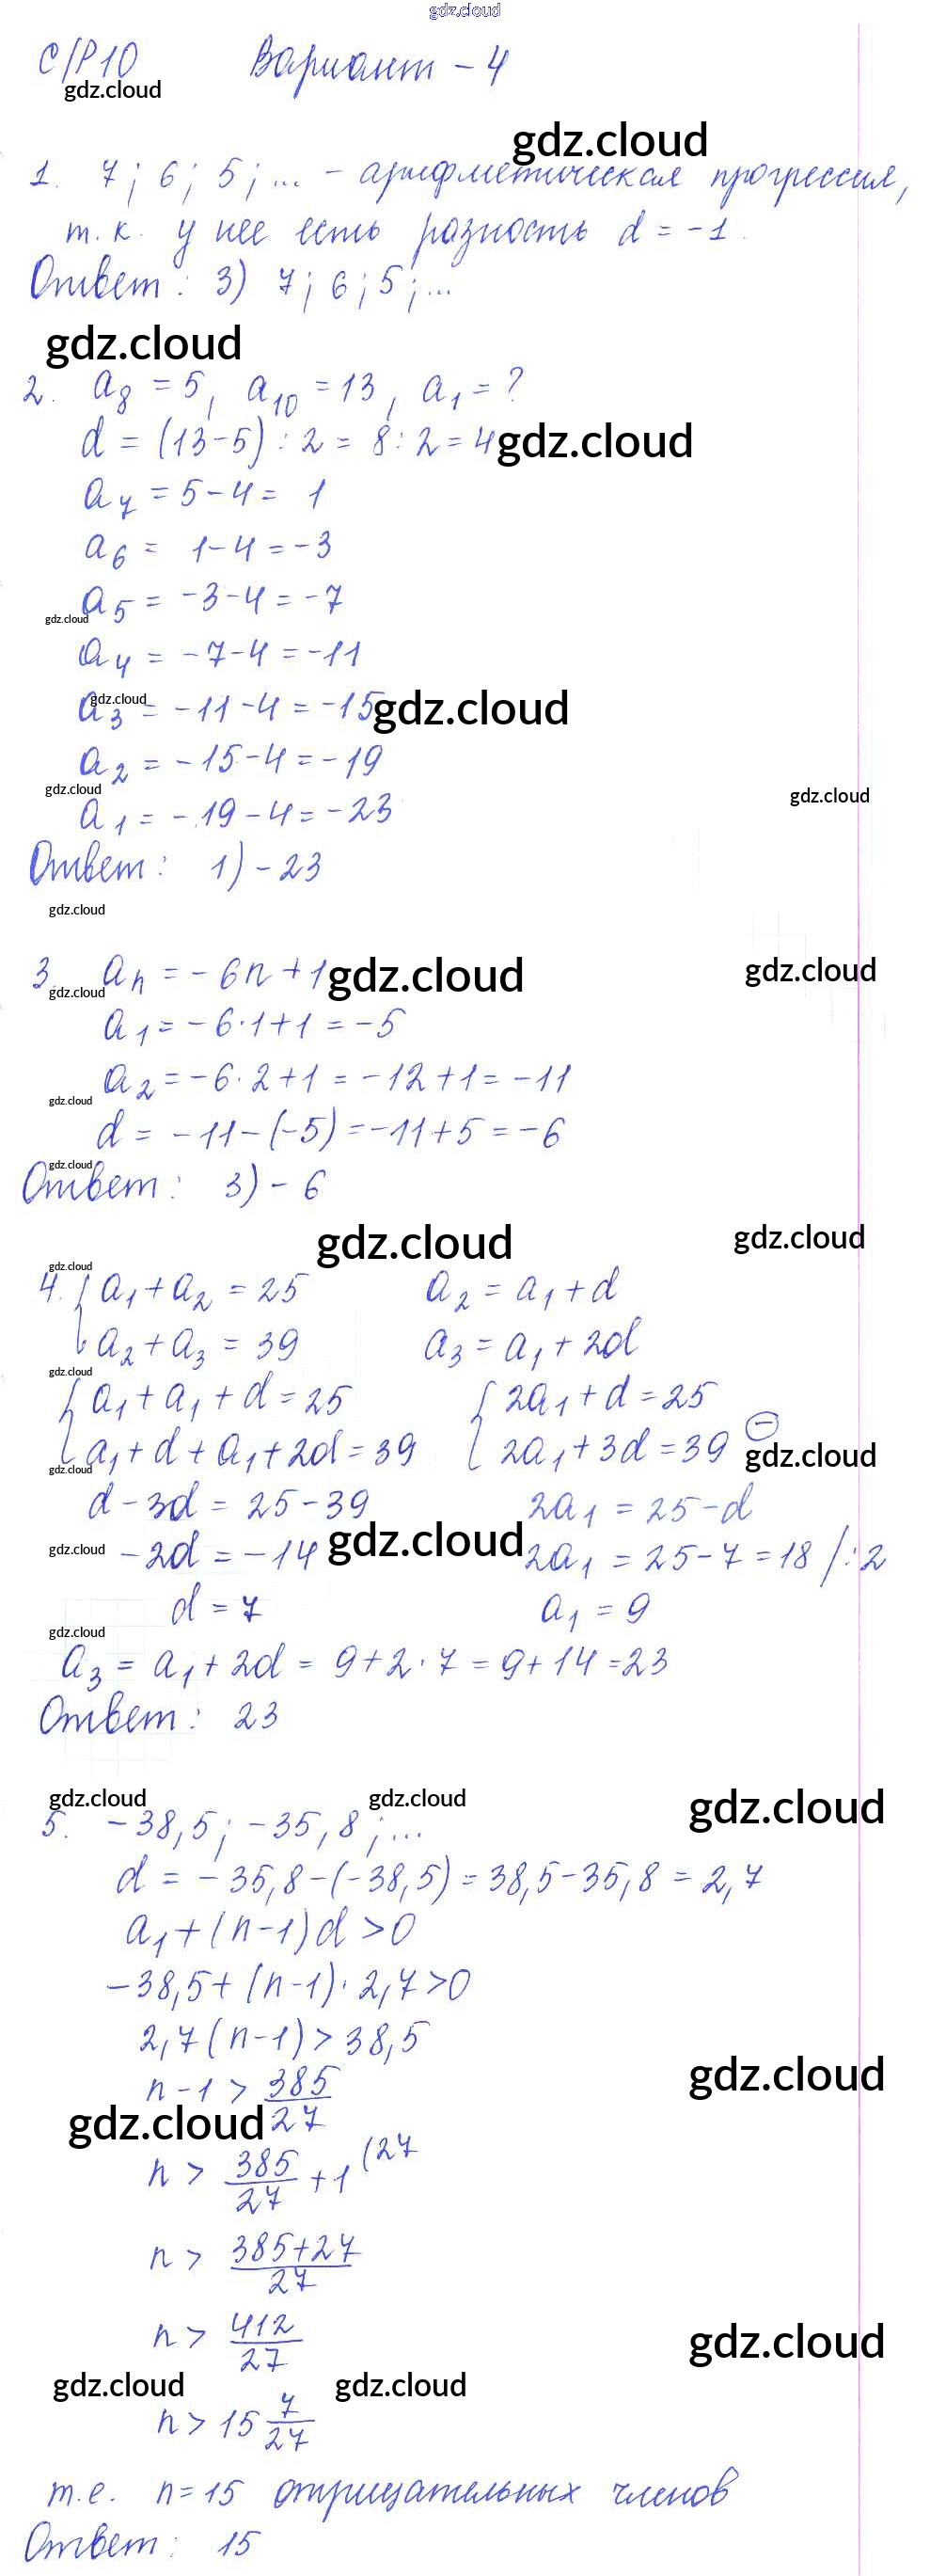 gdz.cloud
С/Р 10 Вариант - 4
gdz.cloud
gdz.cloud
1. 7; 6; 5; ... - арифметическая прогрессия,
т.к. у нее есть разность d = -1.
Ответ: 3) 7; 6; 5; ...
gdz.cloud
2. a₈ = 5, a₁₀ = 13, a₁ = ?
d = (13-5) : 2 = 8 : 2 = 4 gdz.cloud
a₇ = 5 - 4 = 1
a₆ = 1 - 4 = -3
a₅ = -3 - 4 = -7
gdz.cloud
a₄ = -7 - 4 = -11
gdz.cloud
a₃ = -11 - 4 = -15 gdz.cloud
a₂ = -15 - 4 = -19
gdz.cloud gdz.cloud
a₁ = -19 - 4 = -23
Ответ: 1) -23
gdz.cloud
3. aₙ = -6n + 1 gdz.cloud gdz.cloud
gdz.cloud
a₁ = -6·1 + 1 = -5
a₂ = -6·2 + 1 = -12 + 1 = -11
gdz.cloud
d = -11 - (-5) = -11 + 5 = -6
gdz.cloud
Ответ: 3) -6
gdz.cloud gdz.cloud
gdz.cloud
4. { a₁ + a₂ = 25 a₂ = a₁ + d
a₂ + a₃ = 39 a₃ = a₁ + 2d
gdz.cloud
{ a₁ + a₁ + d = 25 { 2a₁ + d = 25
a₁ + d + a₁ + 2d = 39 2a₁ + 3d = 39 ⊖
gdz.cloud gdz.cloud
d - 3d = 25 - 39 2a₁ = 25 - d
gdz.cloud -2d = -14 gdz.cloud 2a₁ = 25 - 7 = 18 /:2
d = 7 a₁ = 9
gdz.cloud
a₃ = a₁ + 2d = 9 + 2·7 = 9 + 14 = 23
Ответ: 23
gdz.cloud gdz.cloud gdz.cloud
5. -38,5; -35,8; ...
d = -35,8 - (-38,5) = 38,5 - 35,8 = 2,7
a₁ + (n-1)d > 0
-38,5 + (n-1)·2,7 > 0
2,7(n-1) > 38,5
gdz.cloud
n - 1 > 385/27
gdz.cloud
n > 385/27 + 1 (27
n > (385+27)/27
n > 412/27
gdz.cloud
gdz.cloud gdz.cloud
n > 15 7/27
т.е. n = 15 отрицательных членов
Ответ: 15